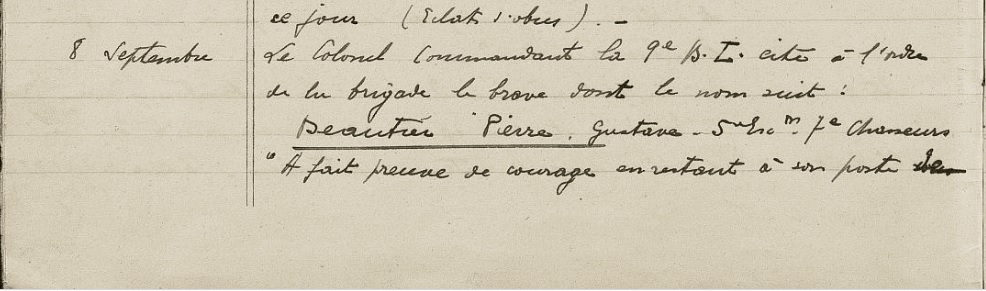 ce jour (Eclats d'obus). -
8 Septembre Le Colonel Commandant la 9e B.L. cite à l'ordre
de la brigade le brave dont le nom suit :
Beautier Pierre, Gustave - 5e Esc on 7e Chasseurs
"A fait preuve de courage en restant à son poste